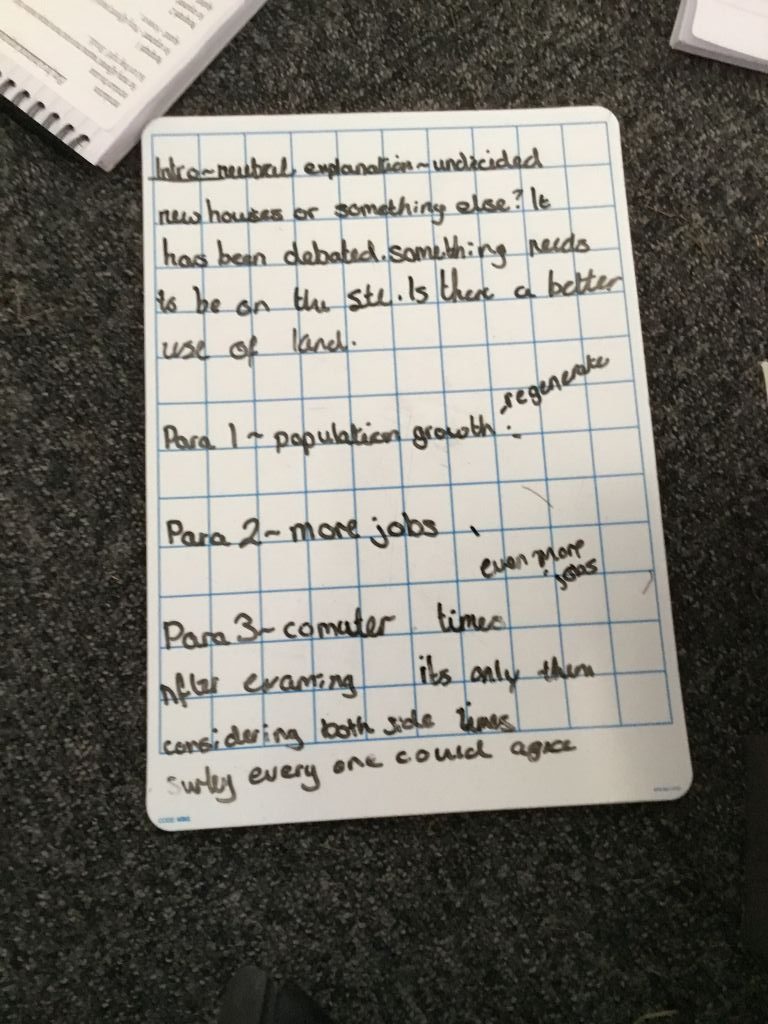 Intro~neutral explanation~undicided
new houses or something else? It
has been debated. something needs
to be on the site. Is there a better
use of land.
regenerate
Para 1 ~ population growth :
Para 2 ~ more jobs
even more
jobs
Para 3~ comuter times
After examing its only then
considering both side times
surley every one could agree
CODE: MBG